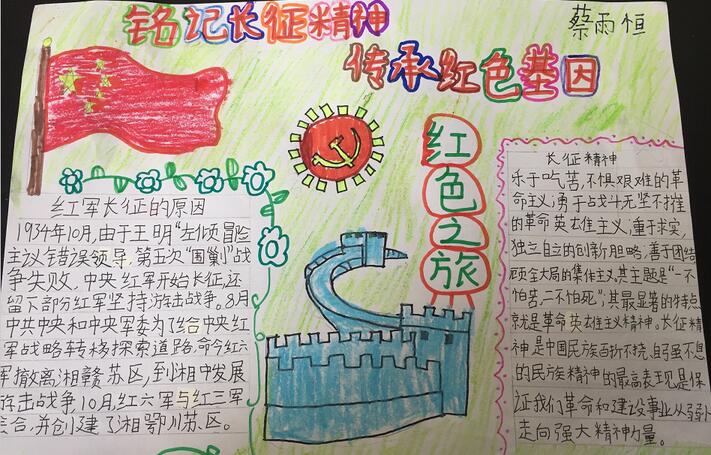 铭记长征精神
蔡雨恒
传承红色基因
红色之旅
红军长征的原因
1934年10月,由于王明"左"倾冒险
主义错误领导,第五次"围剿"战
争失败,中央红军开始长征,还
留下部分红军坚持游击战争。8月
中共中央和中央军委为了给中央红
军战略转移探索道路,命令红六
军撤离湘赣苏区,到湘中发展
游击战争10月,红六军与红三军
会合,并创建了湘鄂川苏区。
长征精神
乐于吃苦,不惧艰难的革
命主义;勇于战斗无坚不摧
的革命英雄主义;重于求实,
独立自立的创新胆略;善于团结
顾全大局的集体主义。其主题是"一不
怕苦,二不怕死",其最显著的特点
就是革命英雄主义精神。长征精
神是中国民族百折不挠,自强不息
的民族精神的最高表现是保
证我们革命和建设事业从弱小
走向强大精神力量。